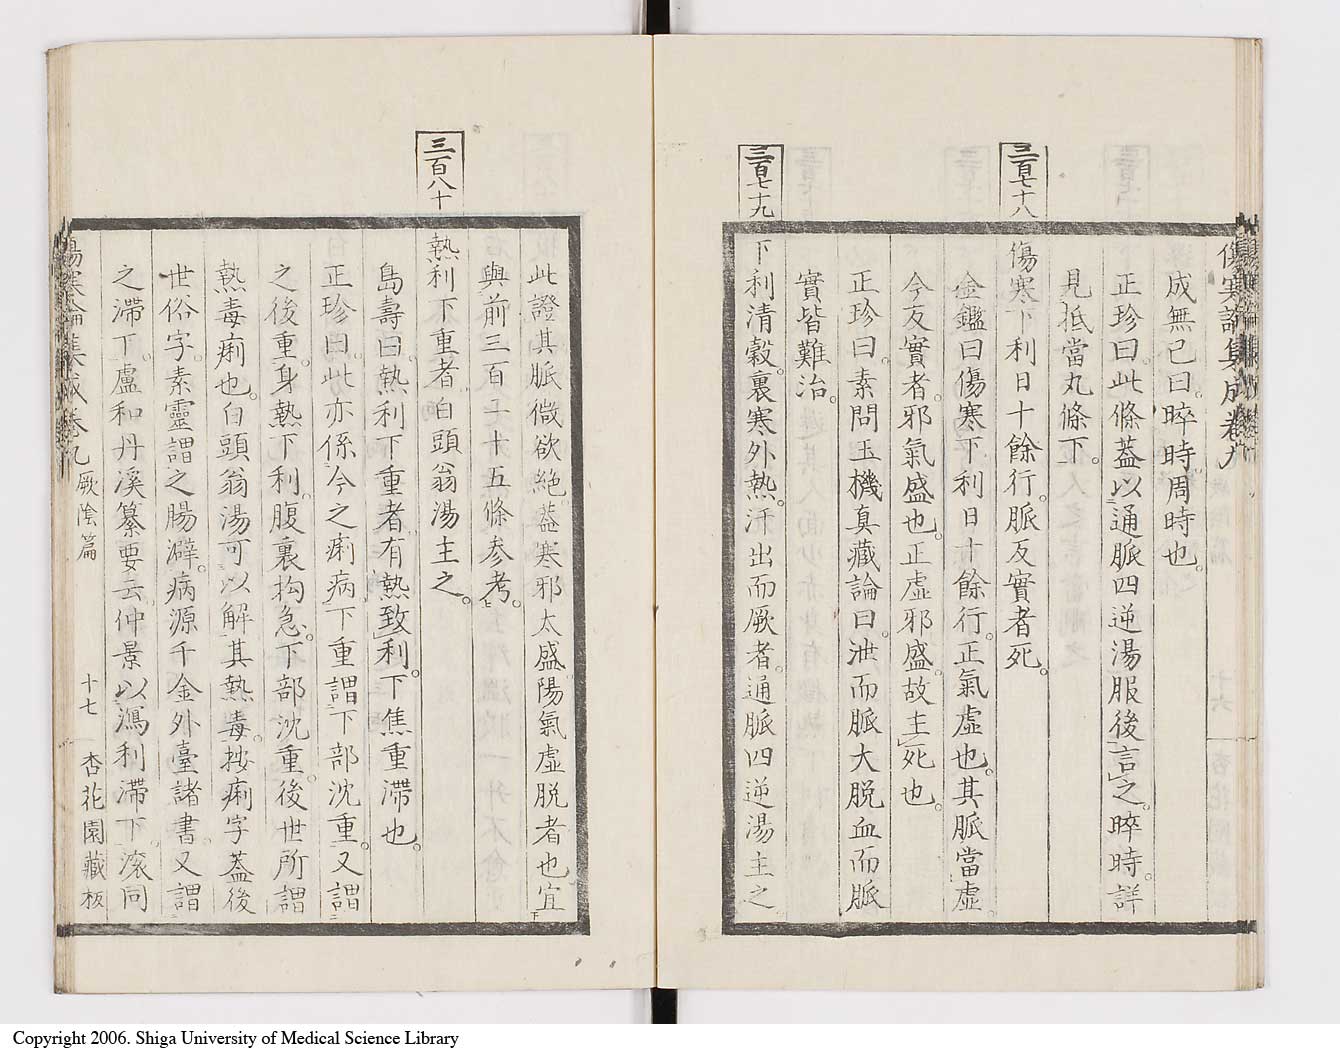 傷寒論集成卷九
成無己曰晬時。周時也。
正珍曰。此條蓋以通脈四逆湯服後言之。晬時。詳
見抵當丸條下。
三百七十八
傷寒下利日十餘行。脈反實者死。
金鑑曰傷寒下利日十餘行。正氣虛也。其脈當虛。
今反實者。邪氣盛也。正虛邪盛。故主死也。
正珍曰。素問玉機真藏論曰。泄而脈大脫血而脈
實皆難治。
三百七十九
下利清穀。裏寒外熱。汗出而厥者。通脈四逆湯主之
此證其脈微欲絕。蓋寒邪太盛陽氣虛脫者也宜下
與前三百二十五條參考。上
三百八十
熱利下重者白頭翁湯主之。
島壽曰。熱利下重者有熱致利。下焦重滯也。
正珍曰。此亦係今之痢病。下重謂下部沈重。又謂
之後重。身熱下利。腹裏拘急。下部沈重。後世所謂
熱毒痢也。白頭翁湯可以解其熱毒。按痢字蓋後
世俗字。素靈謂之腸澼。病源千金外臺諸書。又謂
之滯下。盧和丹溪纂要云。仲景以瀉利滯下。滾同
傷寒論集成卷九 厥陰篇 十七 杏花園藏板
Copyright 2006. Shiga University of Medical Science Library